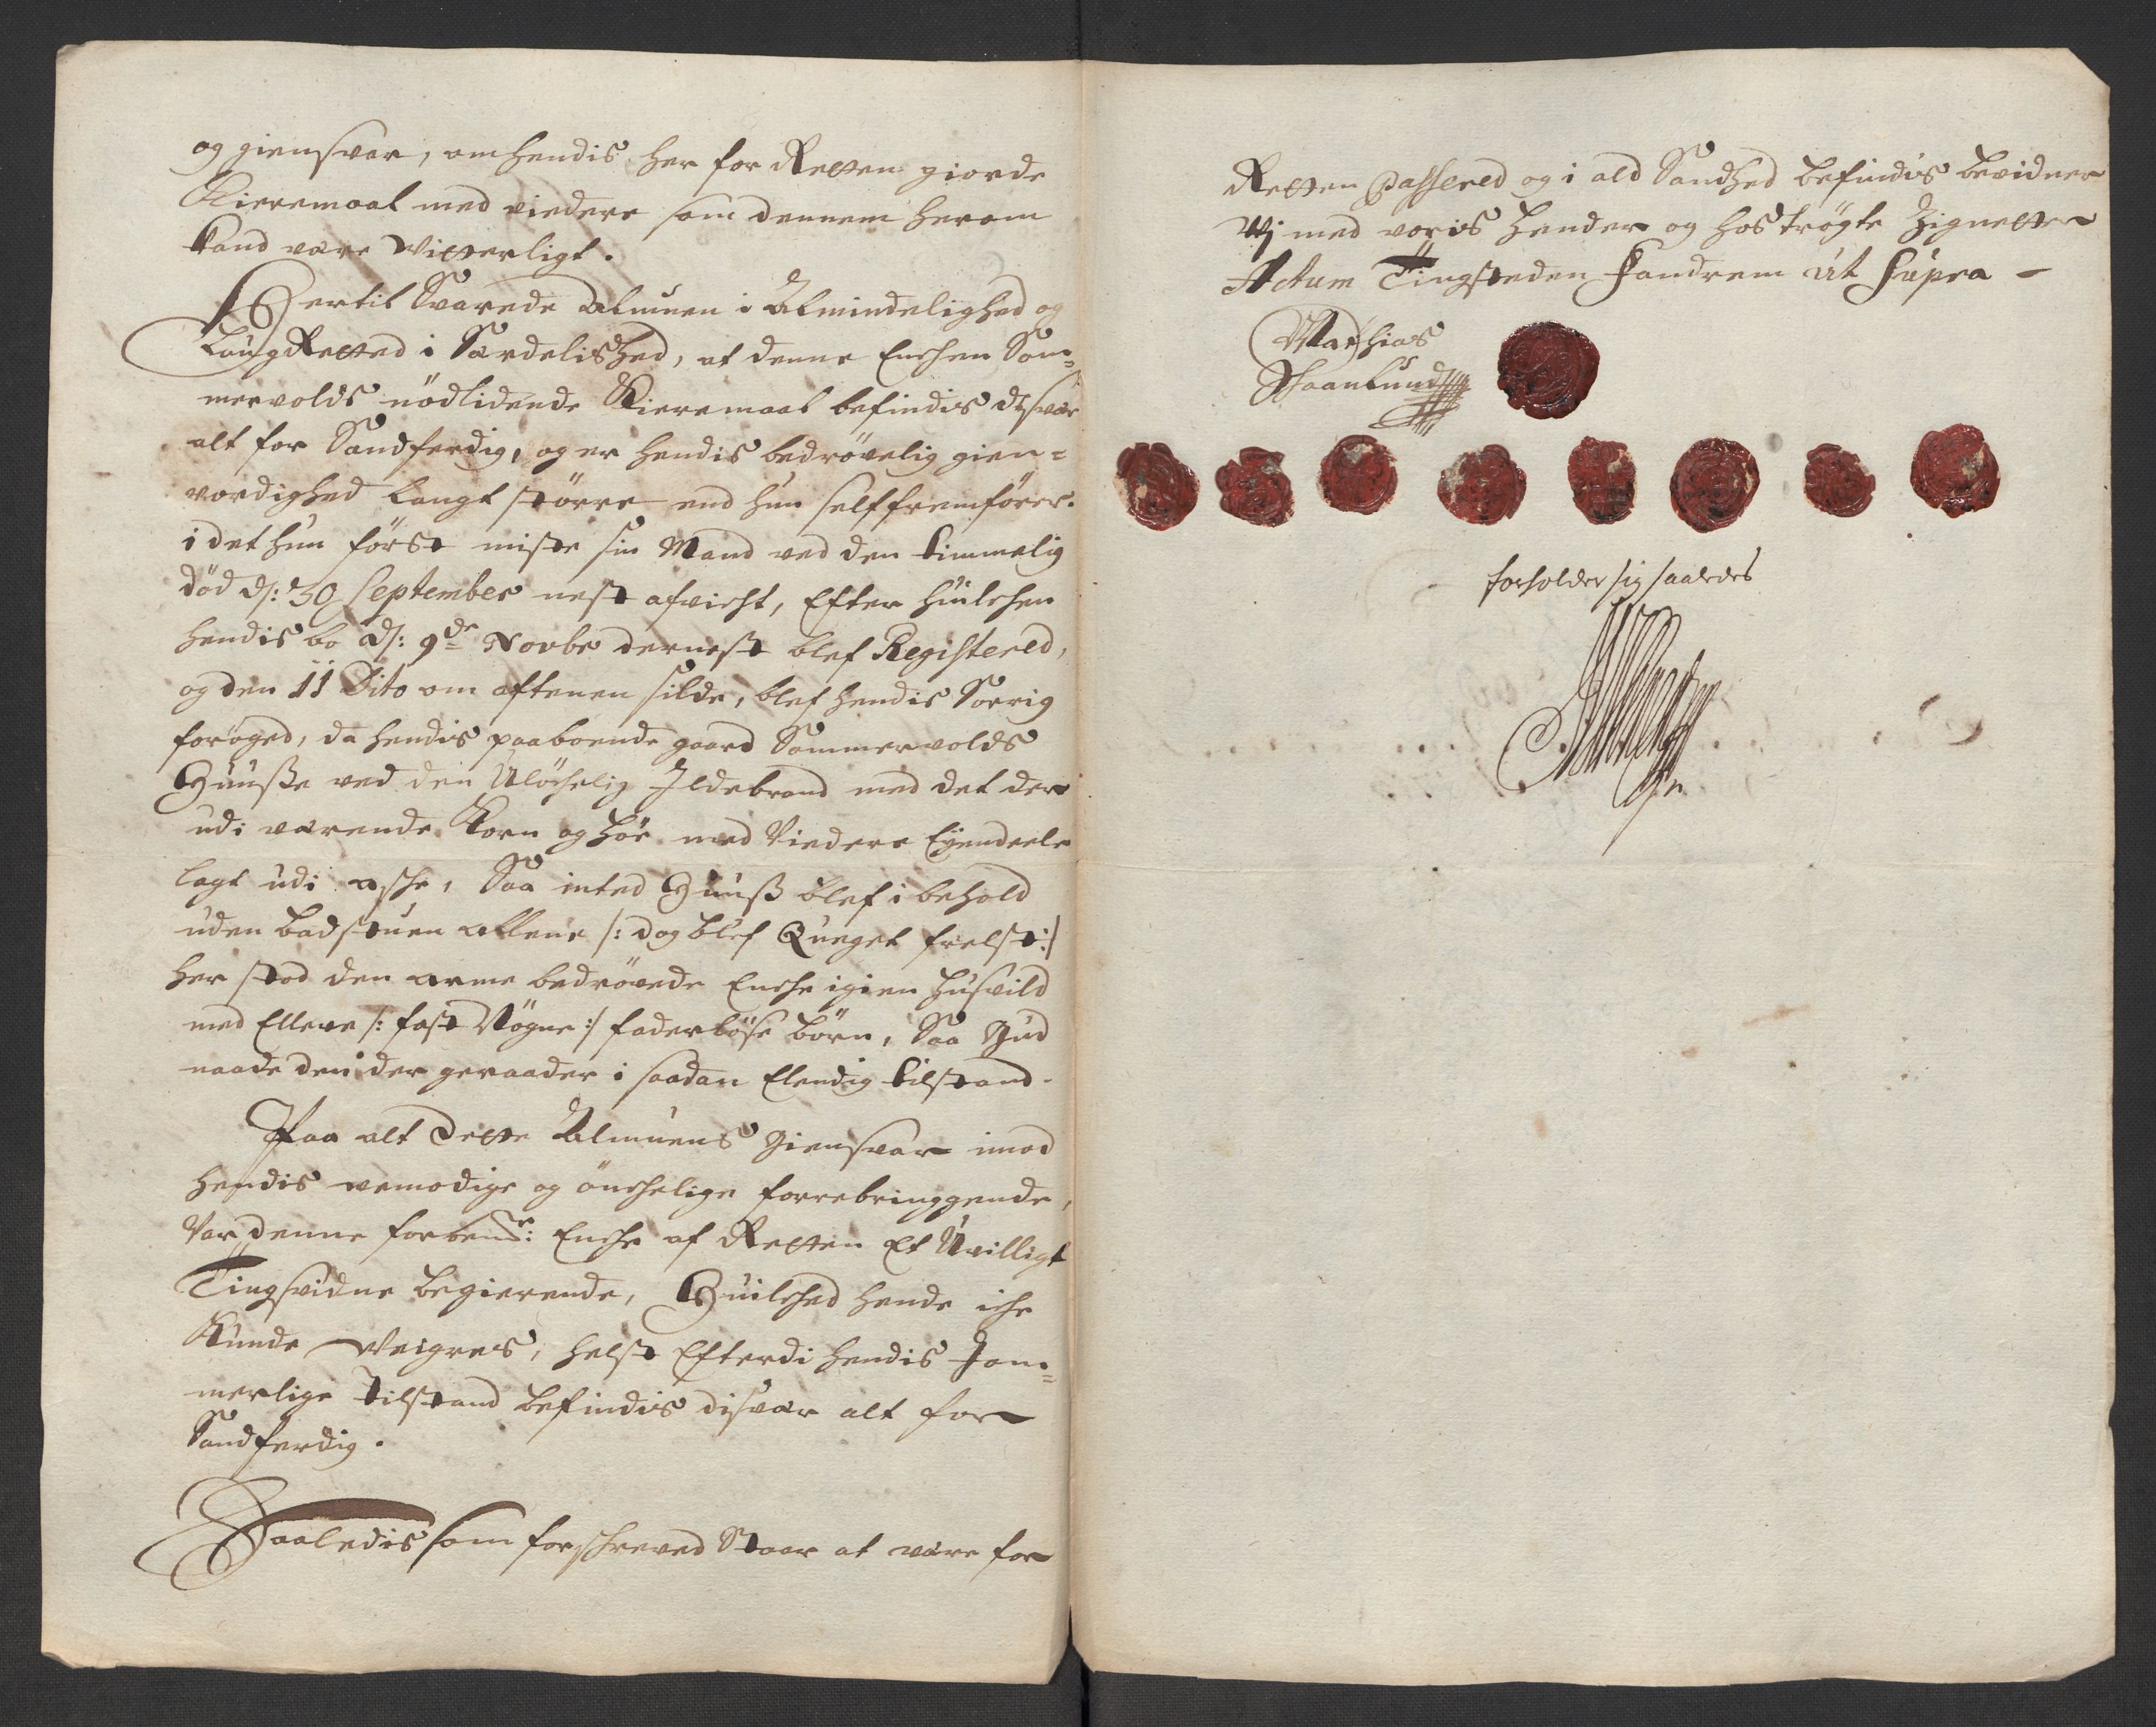 og giensvar, om hendis her for Retten giorde
Kieremaal med viedere som dennem herom
kand være Witterligt.
Hertil Svarede Almuen i Almindelighed og
LaugRetted i Særdelished, at denne Enchen Som-
mervolds nödlidende Kieremaal befindis disvær
alt for Sandferdig, og er hendis bedrövelig gien-
vordighed langt större end hun self fremförer.
i det hun först miste sin Mand ved den timmelig
död d/: 30 September nest afvicht, Efter huilchen
hendis bo d/: 9de Novbr dernest blef Registered,
og den 11 Dito om aftenen silde, blef hendis Sorrig
foröged, da hendis paaboende gaard Sommervolds
Huuße ved den Ulöchelig Ildebrand med det der
udi værende Korn og höe med Viedere Eyendeele
lagt udi asche, Saa inted Huuß blef i behold
uden badstuen allene /: dog blef Queget frelst :/
her stod den arme bedrövede Enche igien husvild
med Elleve /: fast Nögne :/ faderlöse börn, Saa Gud
naade den der geraader i saadan Elendig tilstand.
Paa alt Dette Almuens Giensvar imod
hendis vemodige og önchelige forrebringgende,
Var denne forbente: Enche af Retten Et Uvilligt
Tingsvidne begierende, Huilched hende iche
Kunde Veigres, helst Efterdi hendis Jam-
merlige tilstand befindis disvær alt for
Sandferdig.
Saaledis som forschreved Staar at være for
Retten Passered og i ald Sandhed befindis bevidner
Vj med voris hender og hos trögte Zignetter
Actum Tingsteden Sandrem Ut Supra -
Mathias
Schaanlund
forholder sig saaledes